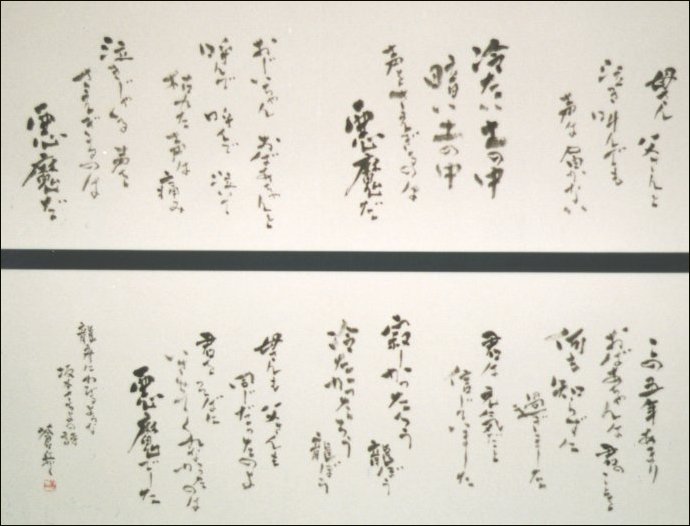 母さん 父さんと
泣き叫んでも
声は届かない
冷たい土の中
暗い土の中
声をさえぎるのは
悪魔だ
おじいちゃん おばあちゃんと
呼んで 呼んで 泣いて
枯れた声は
痛み
泣きじゃくる声を
さえぎるのは
悪魔だ
この五年あまり
おばあちゃんは 君のことを
何も知らずに
過ごしました
君は元気だと
信じていました
寂しかったろう
龍ぼう
冷たかったろう
龍ぼう
母さんも 父さんも
同じだったのよ
君の
悪魔でした
龍彦にわびるような
坂本さちよの詩